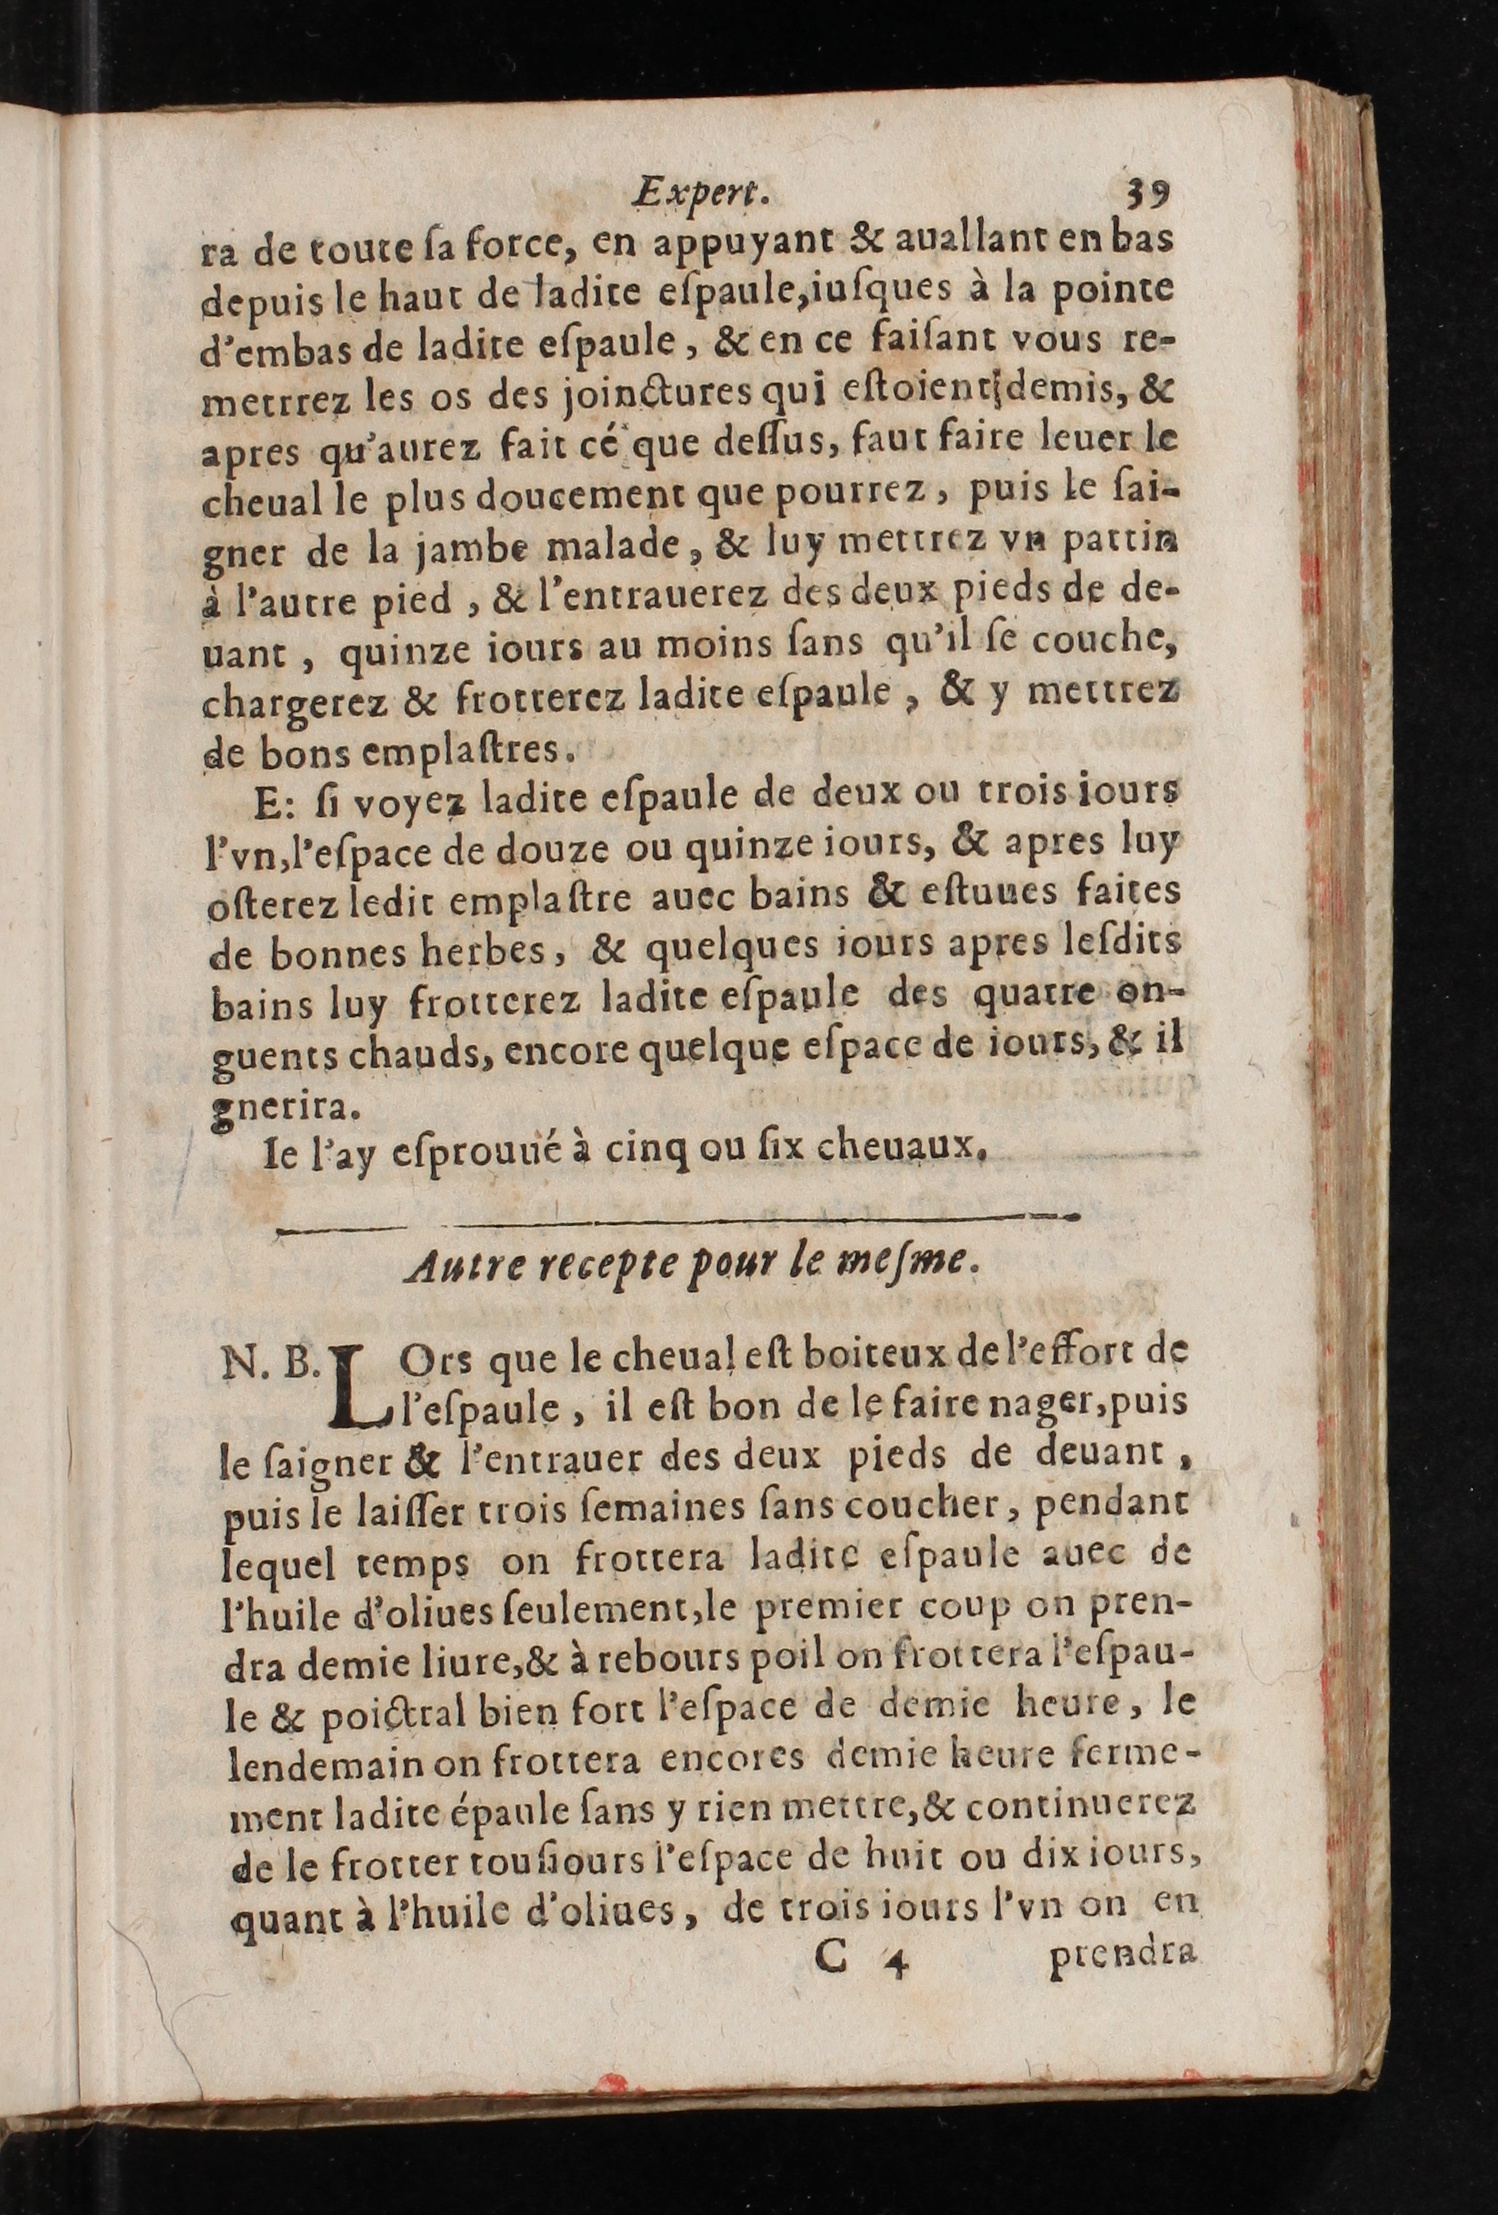 Expert. 39
ra de toute ſa force, en appuyant & auallant en bas
depuis le haut de ladite eſpaule,iuſques à la pointe
d'embas de ladite eſpaule, & en ce faiſant vous re-
metrrez les os des joinctures qui eſtoient demis, &
apres qu'aurez fait cé que deſſus, faut faire leuer le
cheual le plus doucement que pourrez, puis le ſai-
gner de la jambe malade, & luy mettrez vn pattin
à l'autre pied, & l'entrauerez des deux pieds de de-
uant, quinze iours au moins ſans qu'il ſe couche,
chargerez & frotterez ladite eſpaule, & y mettrez
de bons emplaſtres.
E: ſi voyez ladite eſpaule de deux ou trois iours
l'vn,l'eſpace de douze ou quinze iours, & apres luy
oſterez ledit emplaſtre auec bains & eſtuues faites
de bonnes herbes, & quelques iours apres leſdits
bains luy frotterez ladite eſpaule des quatre on-
guents chauds, encore quelque eſpace de iours, & il
gnerira.
Ie l'ay eſprouué à cinq ou ſix cheuaux.
Autre recepte pour le meſme.
N. B. LOrs que le cheual eſt boiteux de l'effort de
l'eſpaule, il eſt bon de le faire nager,puis
le ſaigner & l'entrauer des deux pieds de deuant,
puis le laiſſer trois ſemaines ſans coucher, pendant
lequel temps on frottera ladite eſpaule auec de
l'huile d'oliues ſeulement,le premier coup on pren-
dra demie liure,& à rebours poil on frottera l'eſpau-
le & poictral bien fort l'eſpace de demie heure, le
lendemain on frottera encores demie heure ferme-
ment ladite épaule ſans y rien mettre,& continuerez
de le frotter touſiours l'eſpace de huit ou dix iours,
quant à l'huile d'oliues, de trois iours l'vn on en
C 4 prendra